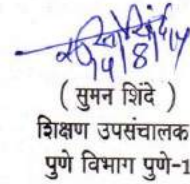 14/8/14
( सुमन शिंदे )
शिक्षण उपसंचालक
पुणे विभाग पुणे-1